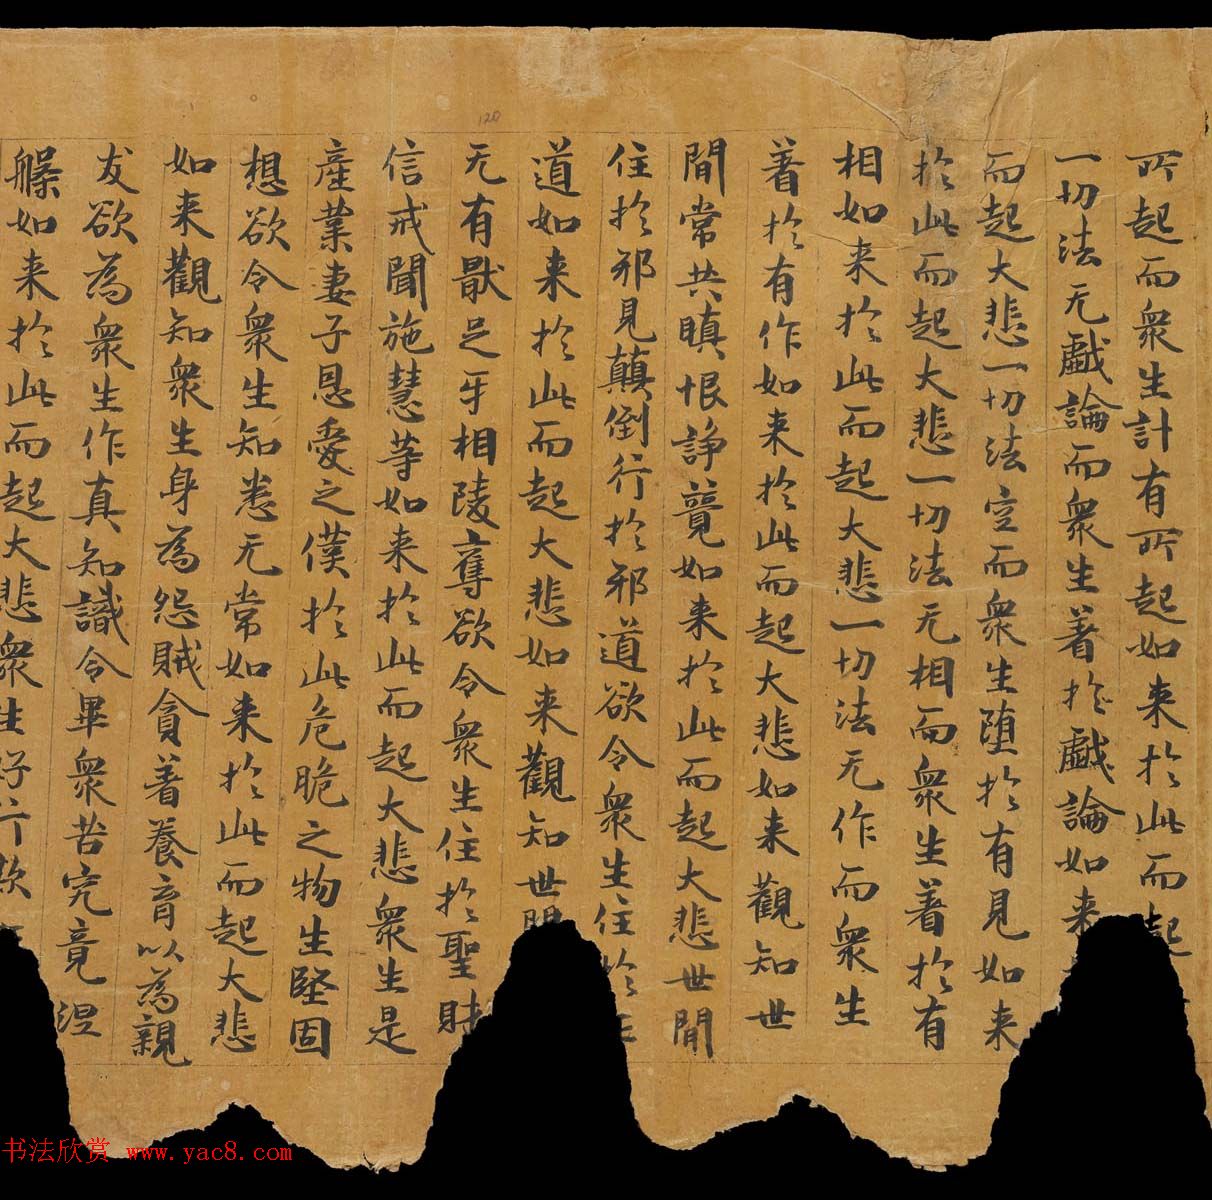 所起而衆生計有所起如来於此而起
一切法无戲論而衆生著於戲論如来
而起大悲一切法空而衆生堕於有見如来
於此而起大悲一切法无相而衆生著於有
相如来於此而起大悲一切法无作而衆生
著於有作如来於此而起大悲如来觀知世
間常共瞋恨諍競如来於此而起大悲世間
住於邪見顛倒行於邪道欲令衆生住於正
道如来於此而起大悲如来觀知世間
无有猒足牙相陵奪欲令衆生住於聖財
信戒聞施慧等如来於此而起大悲衆生是
産業妻子恩愛之僕於此危脆之物生堅固
想欲令衆生知悉无常如来於此而起大悲
如来觀知衆生身為怨賊貪著養育以為親
友欲為衆生作真知識令畢衆苦究竟涅
槃如来於此而起大悲衆生好行欺
120
书法欣赏 www.yac8.com